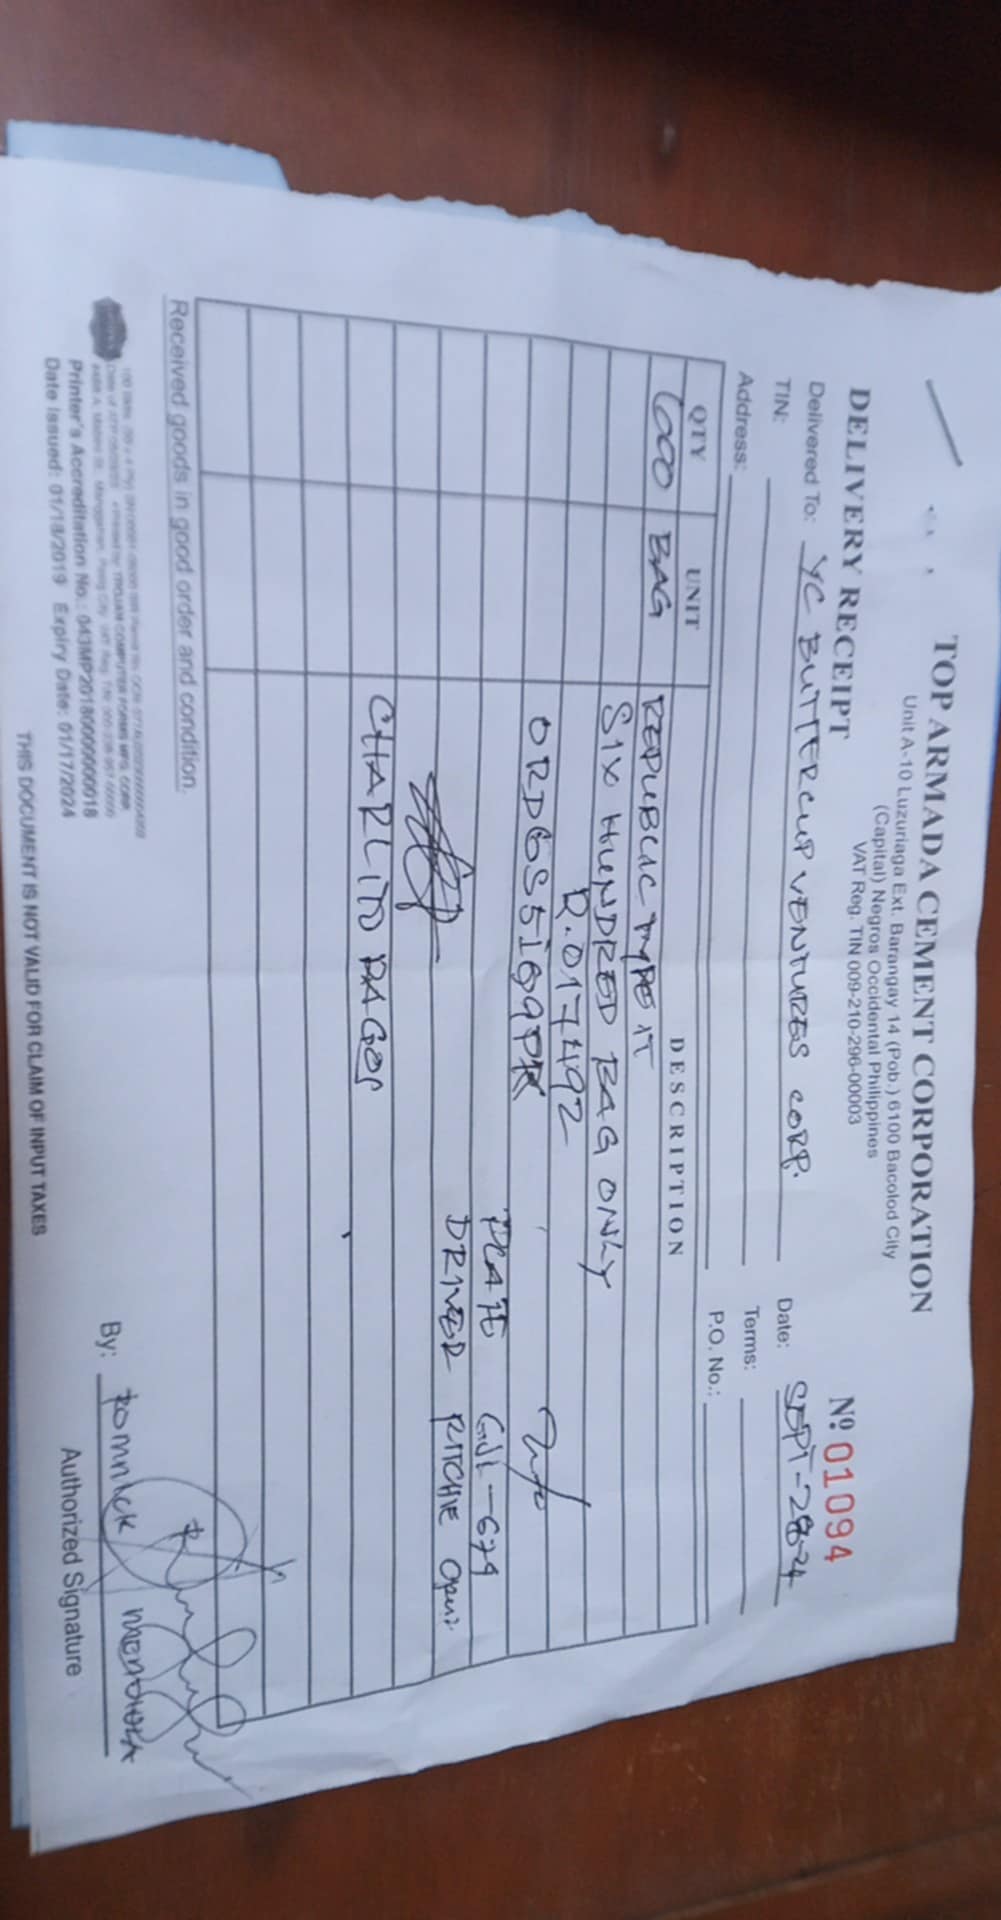 TOP ARMADA CEMENT CORPORATION
Unit A-10 Luzuriaga Ext. Barangay 14 (Pob.) 6100 Bacolod City
(Capital) Negros Occidental Philippines
VAT Reg. TIN 009-210-296-00003
DELIVERY RECEIPT
Nº 01094
Delivered To: YC BUTTERCUP VENTURES CORP.
Date: SEPT-28-24
TIN:
Terms:
Address:
P.O. No.:
QTY UNIT DESCRIPTION
600 BAG REPUBLIC TYPE 1T
SIX HUNDRED BAG ONLY
R.017492
PLATE GJL-679
DRIVER RITCHIE
CHARLITO PAGOS
Received goods in good order and condition.
By: ROMNICK MENDIOLA
Authorized Signature
Printer's Accreditation No.: 043MP20180000000018
Date Issued: 01/18/2019 Expiry Date: 01/17/2024
THIS DOCUMENT IS NOT VALID FOR CLAIM OF INPUT TAXES